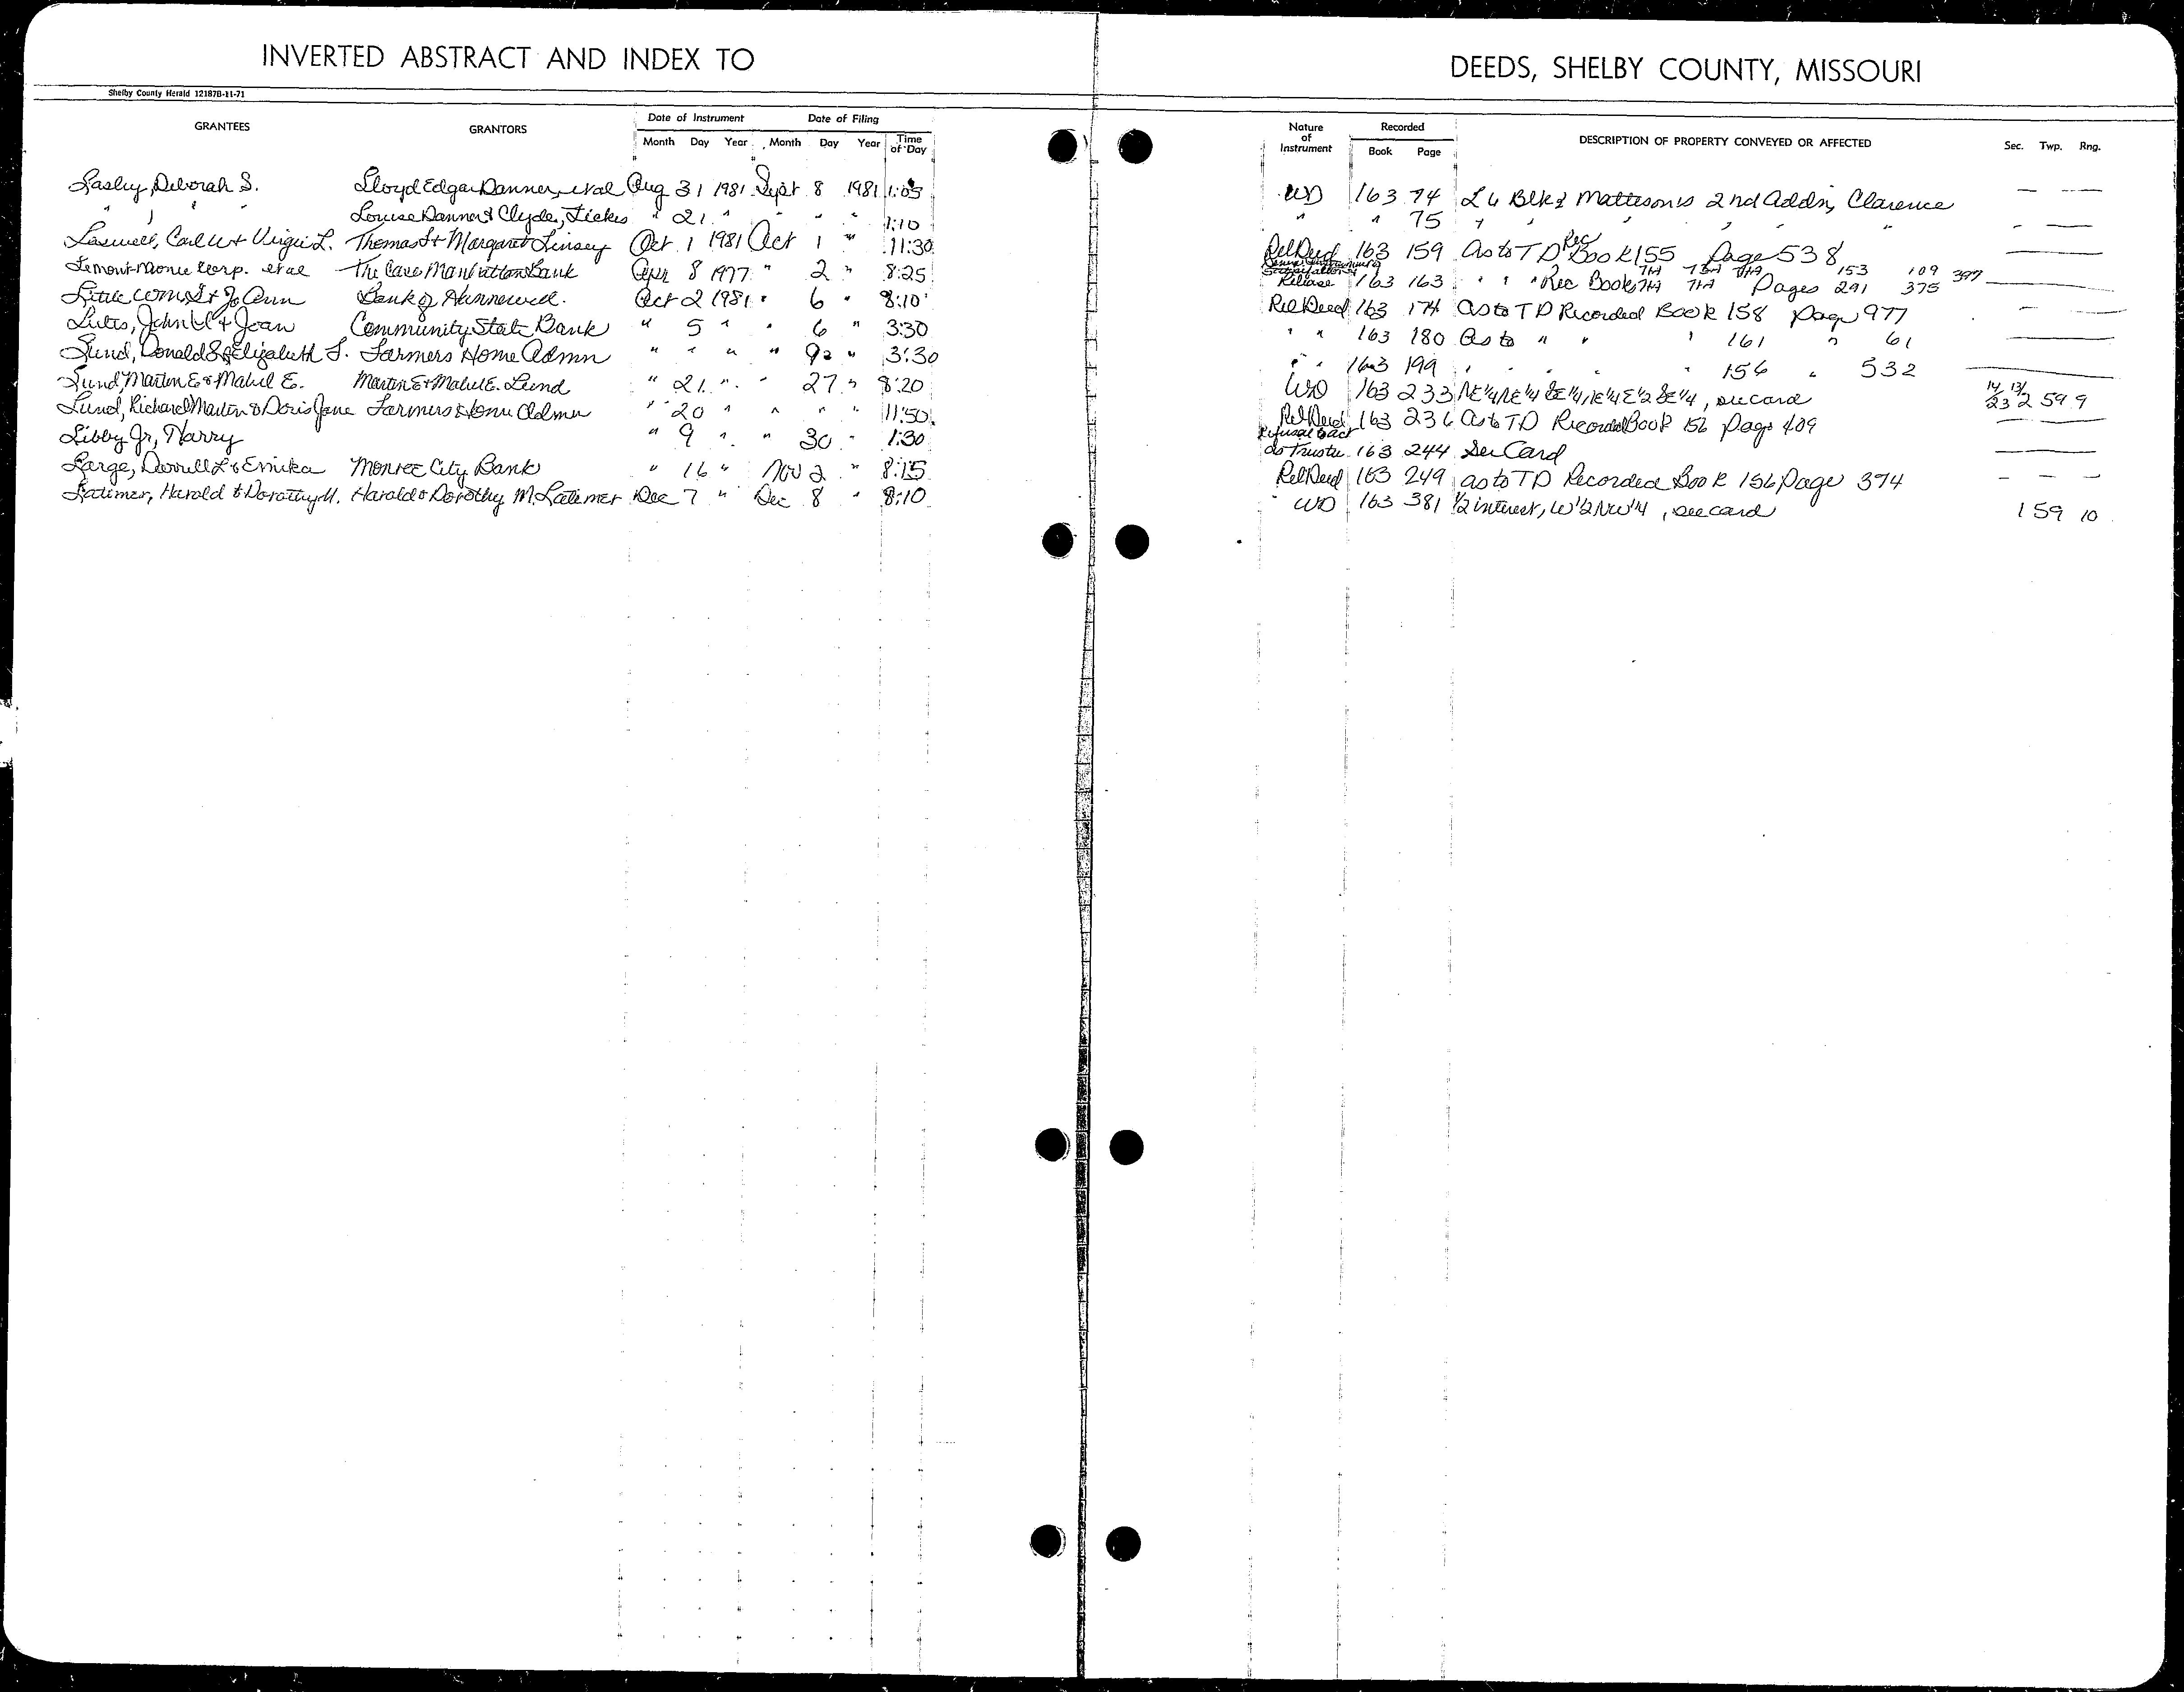 INVERTED ABSTRACT AND INDEX TO
DEEDS, SHELBY COUNTY, MISSOURI
Shelby County Herald 12187B-11-71
GRANTEES GRANTORS Date of Instrument Date of Filing
Month Day Year Month Day Year Time of Day
Nature of Instrument Recorded Book Page DESCRIPTION OF PROPERTY CONVEYED OR AFFECTED Sec. Twp. Rng.
Lasley, Deborah S. Lloyd Edgar Danner, et al Aug 31 1981 Sept 8 1981 1:05 WD 163 74 L 6 Blk 2 Mattison's 2nd Addn, Clarence — — —
" " " Louise Danner & Clyde, Lickes " 21 " " " " 1:10 " " 75 " " " " " — — —
Laswell, Carl W + Virgie L. Thomas L + Margaret Linsey Oct 1 1981 Oct 1 " 11:30 Rel Deed 163 159 As to TD Rec Book 155 Page 538
Lemont-Monee Corp. et al The Manhattan Bank Apr 8 1977 " 2 " 8:25 Release 163 163 " " " Rec Book 7HA 7HA 7HA Pages 291 153 375 109 397
Little Ann Bank of Hunnewell. Oct 2 1981 " 6 " 8:10 Rel Deed 163 174 As to TD Recorded Book 158 page 977
Lutes, John W + Joan Community State Bank " 5 " " 6 " 3:30 " " 163 180 As to " " " 161 " 61
Lund, Donald S & Elizabeth J. Farmers Home Admn " " " " 9 " 3:30 " " 163 199 " " " " " 156 " 532
Lund, Marten E & Mabel E. Marten E + Mabel E. Lund " 21 " " 27 " 8:20 WD 163 233 NE¼NE¼ SE¼NE¼ E½SE¼, see card 14, 13/23, 2 59 9
Lund, Richard Marten & Doris Jane Farmers Home Admn " 20 " " " " 11:50 Rel Deed 163 236 As to TD Recorded Book 156 page 409
Libby Jr, Harry " 9 " " 30 " 1:30 Refusal to act as Trustee 163 244 See Card
Large, Darrell L & Erika Monroe City Bank " 16 " Nov 2 " 8:15 Rel Deed 163 249 as to TD Recorded Book 156 Page 374 — — —
Latimer, Harold & Dorothy M. Harold & Dorothy M. Latimer Dec 7 " Dec 8 " 8:10 WD 163 381 ½ interest, W½NW¼, see card 1 59 10